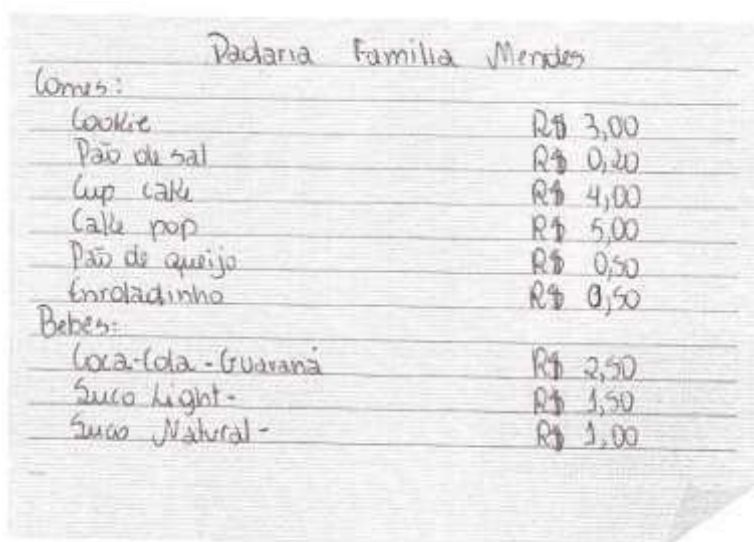 Padaria Familia Mendes
Comes:
Cookie R$ 3,00
Pão de sal R$ 0,20
Cup cake R$ 4,00
Cake pop R$ 5,00
Pão de queijo R$ 0,50
Enroladinho R$ 0,50
Bebes:
Coca-Cola - Guaraná R$ 2,50
Suco Light - R$ 1,50
Suco Natural - R$ 1,00